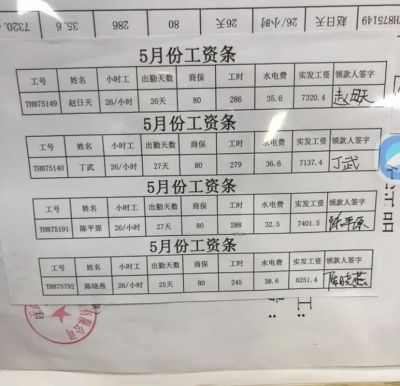 THB75149 赵日天 26/小时 26天 80 286 35.6 7320.4
5月份工资条
工号 姓名 小时工 出勤天数 商保 工时 水电费 实发工资 领款人签字
THB75149 赵日天 26/小时 26天 80 286 35.6 7320.4 赵日天
5月份工资条
工号 姓名 小时工 出勤天数 商保 工时 水电费 实发工资 领款人签字
THB75140 丁武 26/小时 27天 80 279 36.6 7137.4 丁武
5月份工资条
工号 姓名 小时工 出勤天数 商保 工时 水电费 实发工资 领款人签字
THB75191 陈平原 26/小时 27天 80 288 32.5 7401.5 陈平原
5月份工资条
工号 姓名 小时工 出勤天数 商保 工时 水电费 实发工资 领款人签字
THB75792 陈晓燕 26/小时 25天 80 245 38.6 6251.4 陈晓燕
有限公司
工: